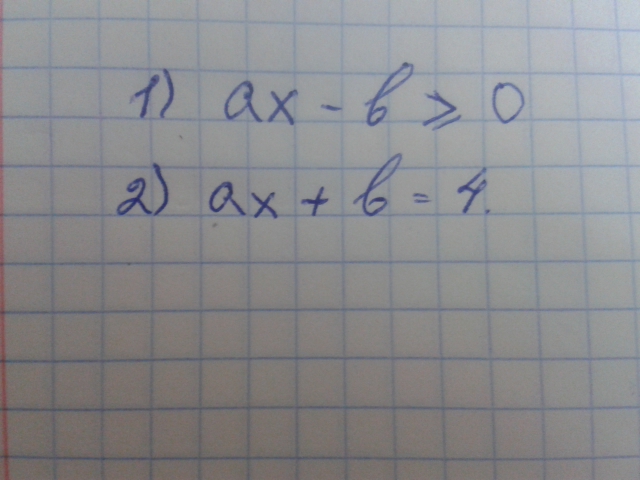 1) ax - b ⩾ 0
2) ax + b = 4.